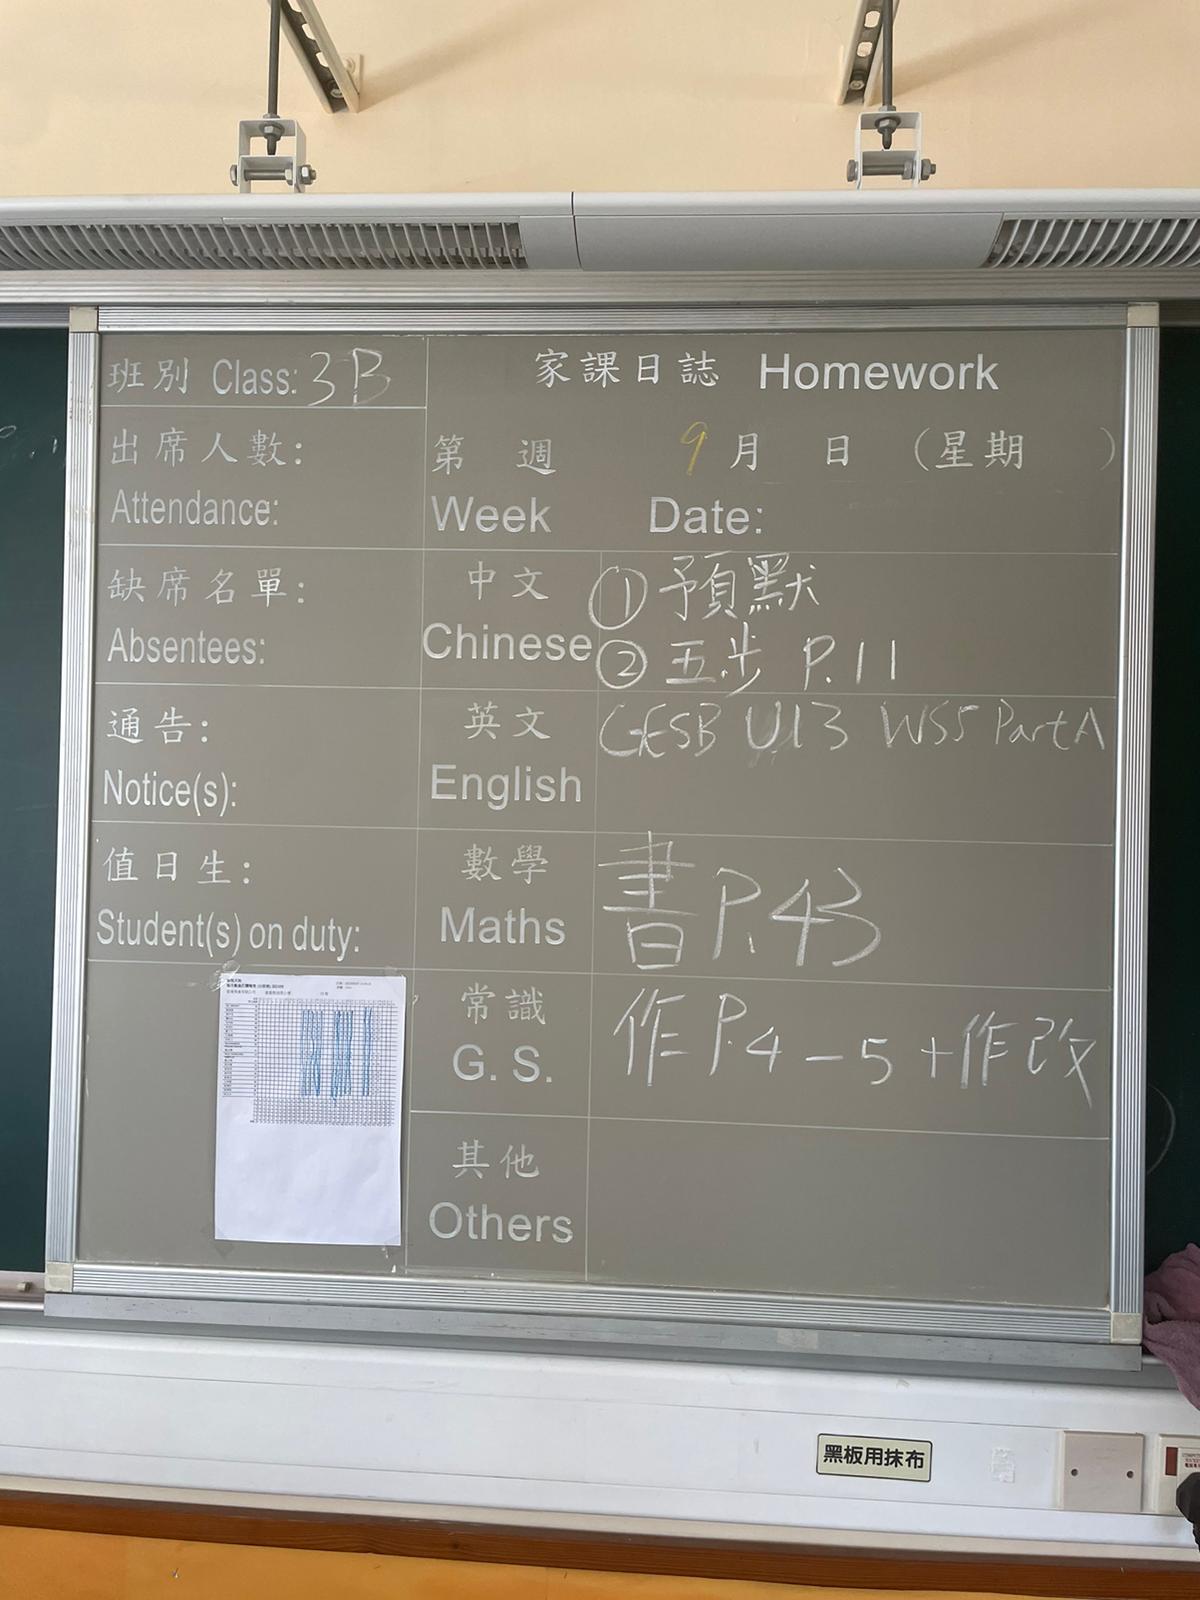 班別 Class: 3B
家課日誌 Homework
出席人數:
Attendance:
第 週 9月 日 (星期 )
Week Date:
缺席名單:
Absentees:
中文
Chinese
① 預默
② 五步 P.11
通告:
Notice(s):
英文
English
GESB U13 WS5 Part A
值日生:
Student(s) on duty:
數學
Maths
書 P.43
常識
G. S.
作 P.4-5+作改
其他
Others
黑板用抹布